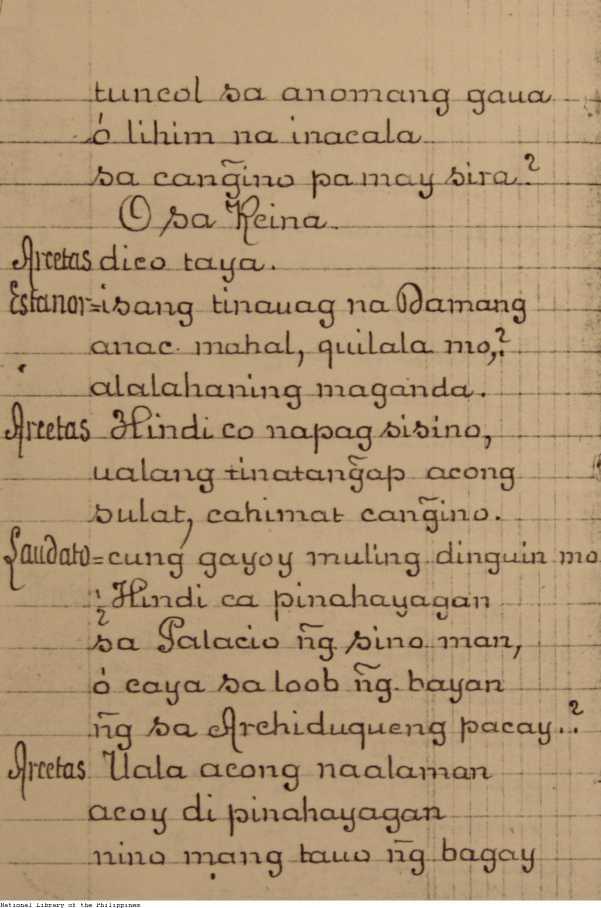 tuncol sa anomang gaua
ó lihim na inacala
sa cang̃ino pa may sira.?
O sa Reina.
Arcetas dico taya.
Estanor=isang tinauag na Damang
anac mahal, quilala mo,?
alalahaning maganda.
Arcetas Hindi co napag sisino,
ualang tinatang̃ap acong
sulat, cahimat cang̃ino.
Laudato=cung gayoy muling dinguin mo
¿Hindi ca pinahayagan
sa Palacio n̄g sino man,
ó caya sa loob n̄g bayan
n̄g sa Archiduqueng pacay..?
Arcetas Uala acong naalaman
acoy di pinahayagan
nino mang tauo n̄g bagay
National Library of the Philippines